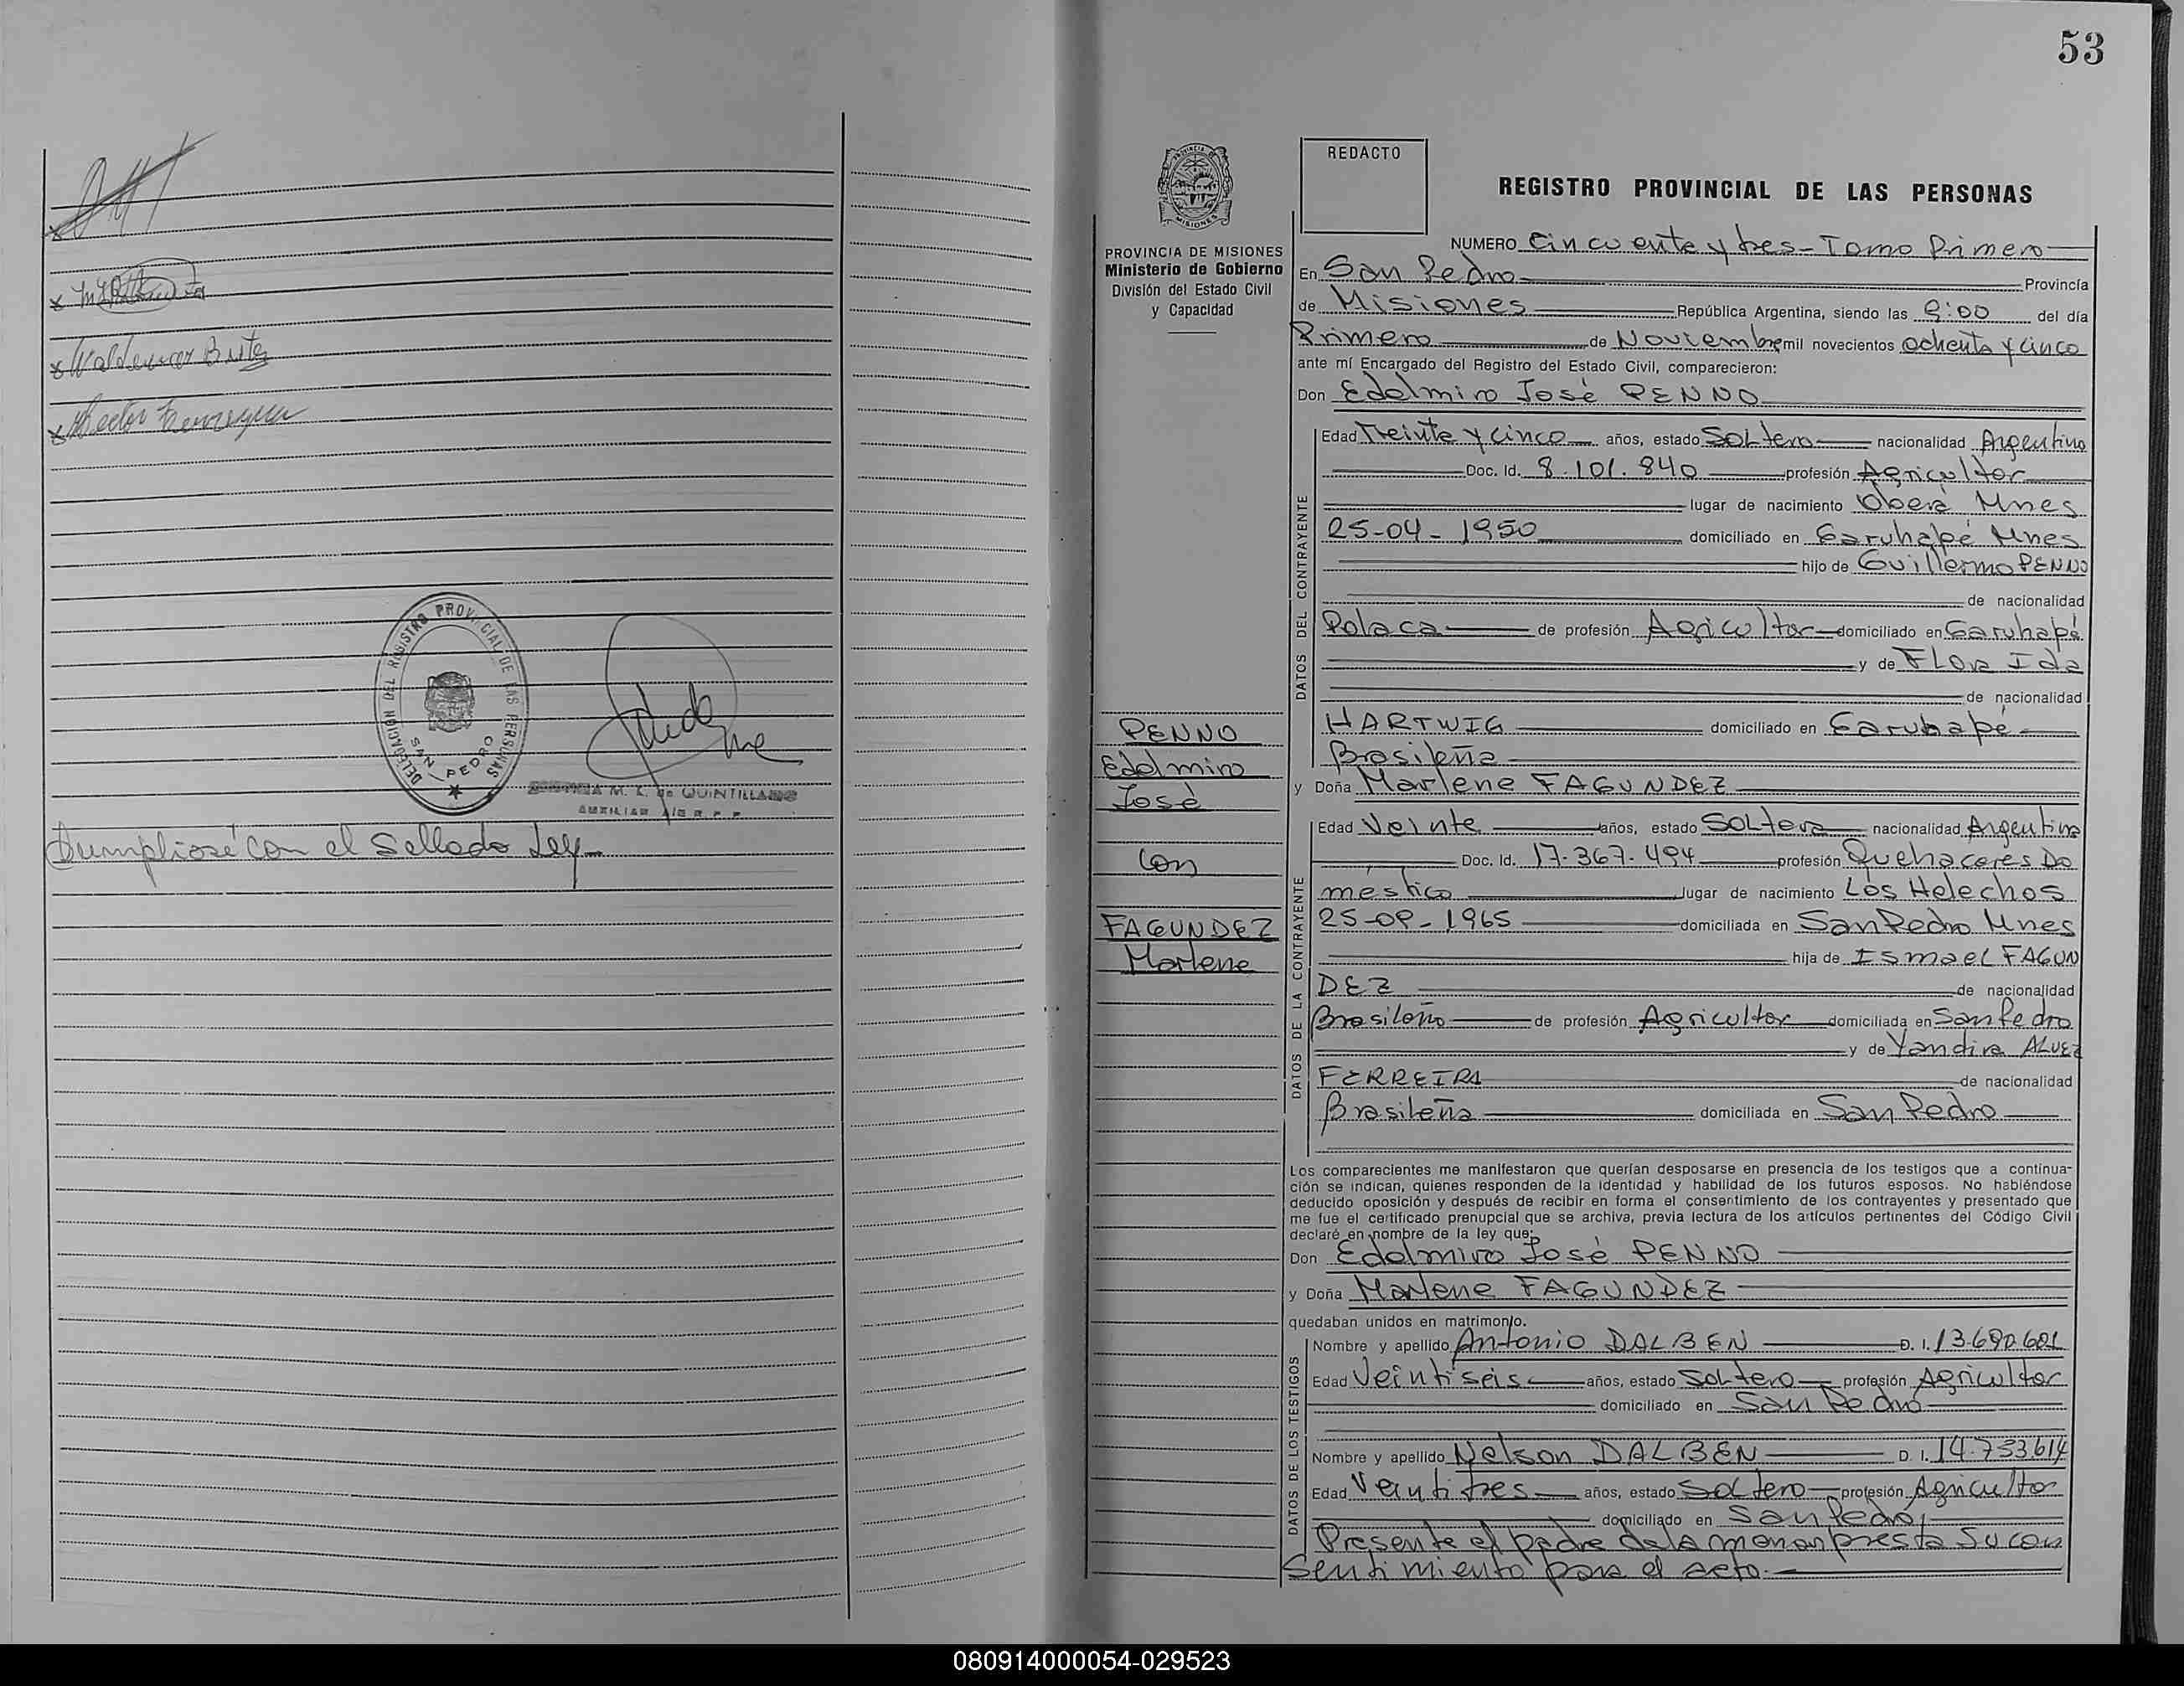 Waldemar
Hector
DELEGACION DEL REGISTRO PROVINCIAL DE LAS PERSONAS
SAN PEDRO
M. K. de QUINTILLANO
AUXILIAR
Cumpliose con el Sellado Ley
53
PROVINCIA DE MISIONES
Ministerio de Gobierno
División del Estado Civil
y Capacidad
PENNO
Edelmiro
José
Con
FAGUNDEZ
Marlene
REDACTO
REGISTRO PROVINCIAL DE LAS PERSONAS
NUMERO Cincuenta y tres - Tomo Primero
En San Pedro Provincia
de Misiones República Argentina, siendo las 9:00 del día
Primero de Noviembre mil novecientos ochenta y cinco
ante mí Encargado del Registro del Estado Civil, comparecieron:
Don Edelmiro José PENNO
DATOS DEL CONTRAYENTE
Edad Treinta y cinco años, estado Soltero nacionalidad Argentino
Doc. Id. 8.101.840 profesión Agricultor
lugar de nacimiento Oberá Mnes
25-04-1950 domiciliado en Garuhapé Mnes
hijo de Guillermo PENNO
de nacionalidad
Polaca de profesión Agricultor domiciliado en Garuhapé
y de Flora Ida
de nacionalidad
HARTWIG domiciliado en Garuhapé
Brasileña
y Doña Marlene FAGUNDEZ
DATOS DE LA CONTRAYENTE
Edad Veinte años, estado Soltera nacionalidad Argentina
Doc. Id. 17.367.494 profesión Quehaceres Do
méstico lugar de nacimiento Los Helechos
25-09-1965 domiciliada en San Pedro Mnes
hija de Ismael FAGUN
DEZ de nacionalidad
Brasileño de profesión Agricultor domiciliada en San Pedro
y de Yandira ALVEZ
FERREIRA de nacionalidad
Brasileña domiciliada en San Pedro
Los comparecientes me manifestaron que querían desposarse en presencia de los testigos que a continua-
ción se indican, quienes responden de la identidad y habilidad de los futuros esposos. No habiéndose
deducido oposición y después de recibir en forma el consentimiento de los contrayentes y presentado que
me fue el certificado prenupcial que se archiva, previa lectura de los artículos pertinentes del Código Civil
declaré en nombre de la ley que:
Don Edelmiro José PENNO
y Doña Marlene FAGUNDEZ
quedaban unidos en matrimonio.
DATOS DE LOS TESTIGOS
Nombre y apellido Antonio DALBEN D. I. 13.690.601
Edad Veintiséis años, estado Soltero profesión Agricultor
domiciliado en San Pedro
Nombre y apellido Nelson DALBEN D. I. 14.753614
Edad Veintitres años, estado Soltero profesión Agricultor
domiciliado en San Pedro
Presente el padre de la menor presta su con
sentimiento para el acto.
080914000054-029523